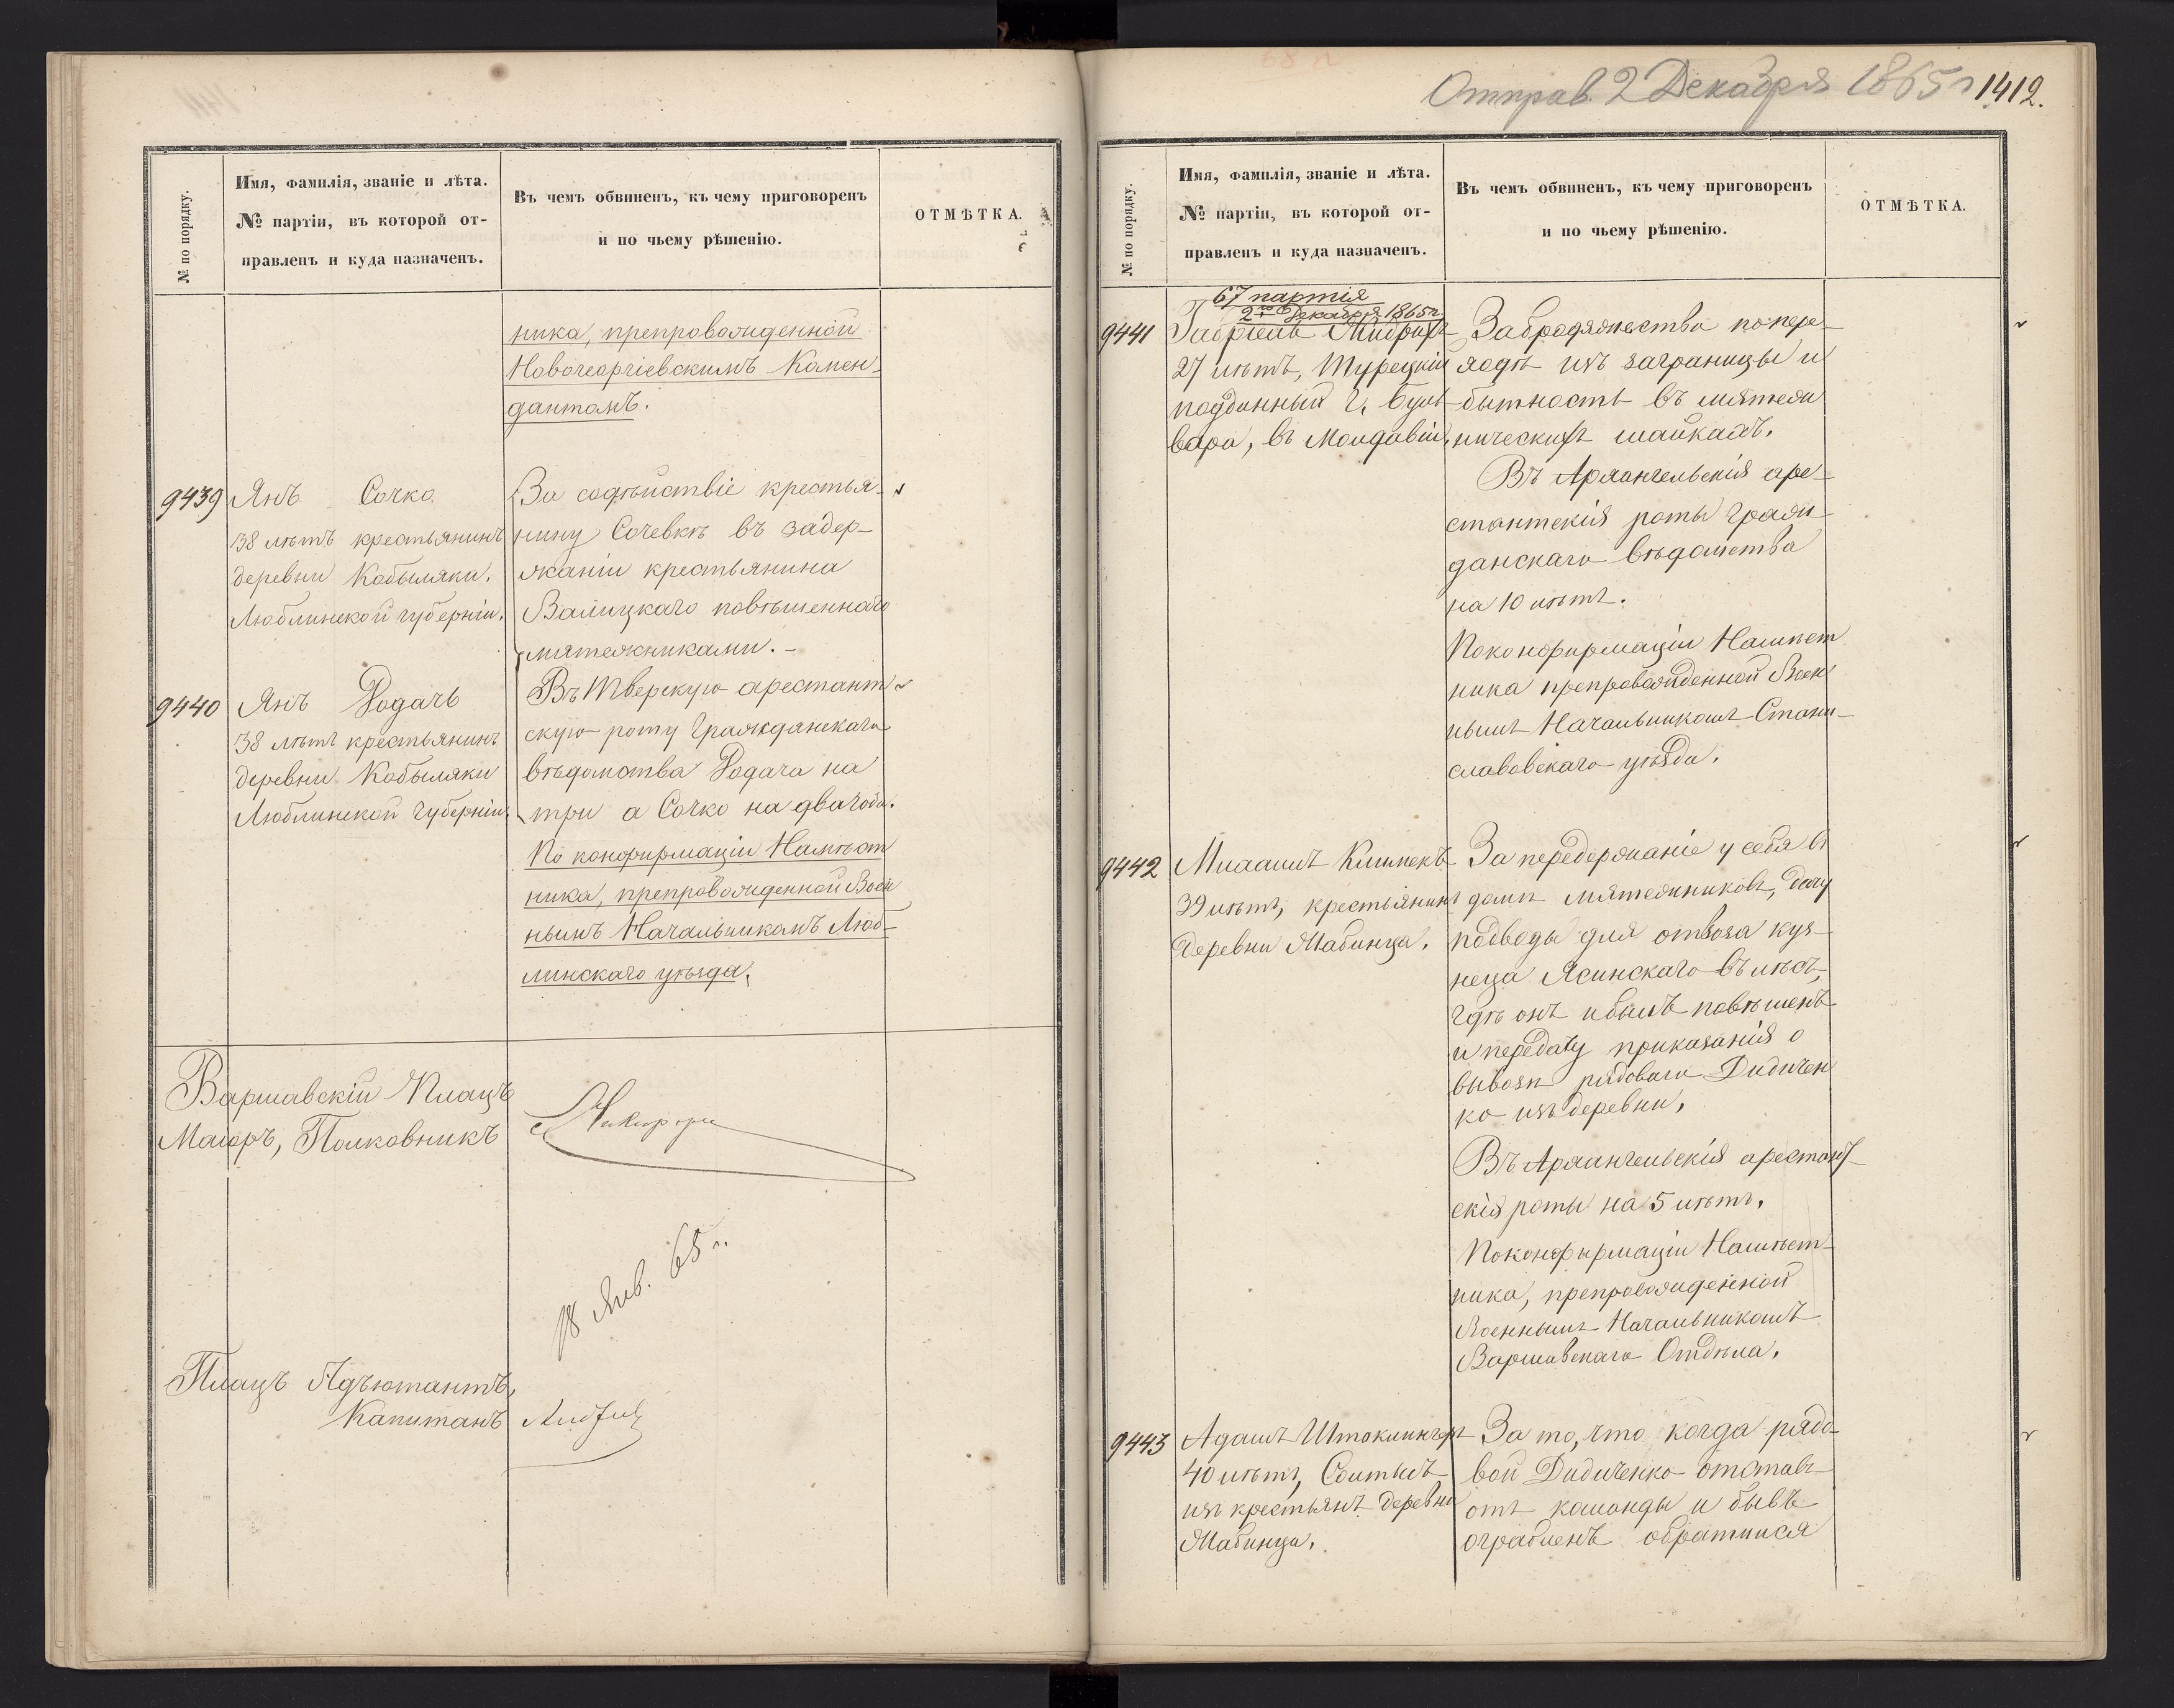 № по порядку.
Имя, фамилія, званіе и лѣта.
№ партіи, въ которой от-
правленъ и куда назначенъ.
Въ чемъ обвиненъ, къ чему приговоренъ
и по чьему рѣшенію.
ОТМѢТКА.
ника, препровожденной
Новогеоргіевскимъ Комен-
дантомъ.
9439
Янъ Сочко
38 лѣтъ крестьянинъ
деревни Кобыляки,
Люблинской губерніи.
За содѣйствіе крестья-
нину Сочевкѣ въ задер-
жаніи крестьянина
Валицкаго повѣшеннаго
мятежниками. -
9440
Янъ Рогачъ
38 лѣтъ крестьянинъ
деревни Кобыляки
Люблинской губерніи.
Въ Тверскую арестант
скую роту Гражданскаго
вѣдомства Рогача на
три а Сочко на два года.
По конфирмаціи Намѣст
ника, препровожденной Воен
нымъ Начальникомъ Люб-
линскаго уѣзда.
Варшавскій Плацъ
Маіоръ, Полковникъ
18 Янв. 65 г.
Плацъ Адъютантъ,
Капитанъ
Отправ. 2 Декабря 1865 г
1412.
№ по порядку.
Имя, фамилія, званіе и лѣта.
№ партіи, въ которой от-
правленъ и куда назначенъ.
Въ чемъ обвиненъ, къ чему приговоренъ
и по чьему рѣшенію.
ОТМѢТКА.
67 партія
2го Декабря 1865 г.
9441
Габріель
27 лѣтъ, Турецкій
подданный г.
въ Молдавіи.
За бродяжество по пере-
ходѣ изъ заграницы и
бытность въ мятеж
ническихъ шайкахъ.
Въ Архангельскія аре-
стантскія роты граж-
данскаго вѣдомства
на 10 лѣтъ.
По конфирмаціи Намѣст
ника препровожденной Воен
нымъ Начальникомъ Стани-
славовскаго уѣзда.
9442
Михаилъ Климекъ
39 лѣтъ, крестьянинъ
деревни Жабинца.
За передержаніе у себя въ
домѣ мятежниковъ, дачу
подводы для отвоза куз-
неца Ясинскаго въ лѣсъ,
гдѣ онъ и былъ повѣшенъ
и передачу приказанія о
вывозѣ рядоваго Дидичен
ко изъ деревни.
Въ Архангельскія арестант-
скія роты на 5 лѣтъ.
По конфирмаціи Намѣст-
ника, препровожденной
Военнымъ Начальникомъ
Варшавскаго Отдѣла.
9443
Адамъ Штоклингеръ
40 лѣтъ, Солтысъ
изъ крестьянъ деревни
Жабинца.
За то, что когда рядо-
вой Дидиченко отставъ
отъ команды и бывъ
ограбленъ обратился